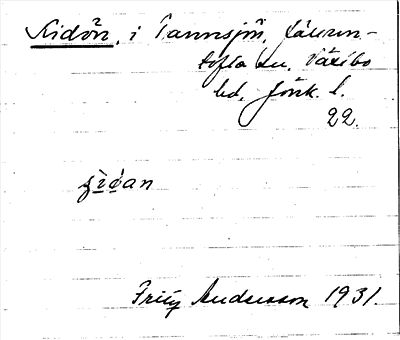 Kidön, i Tannsjön, Laurun-
tofta sn, Västbo
hd, Jönk. l.
22.
Fritz Andersson 1931.